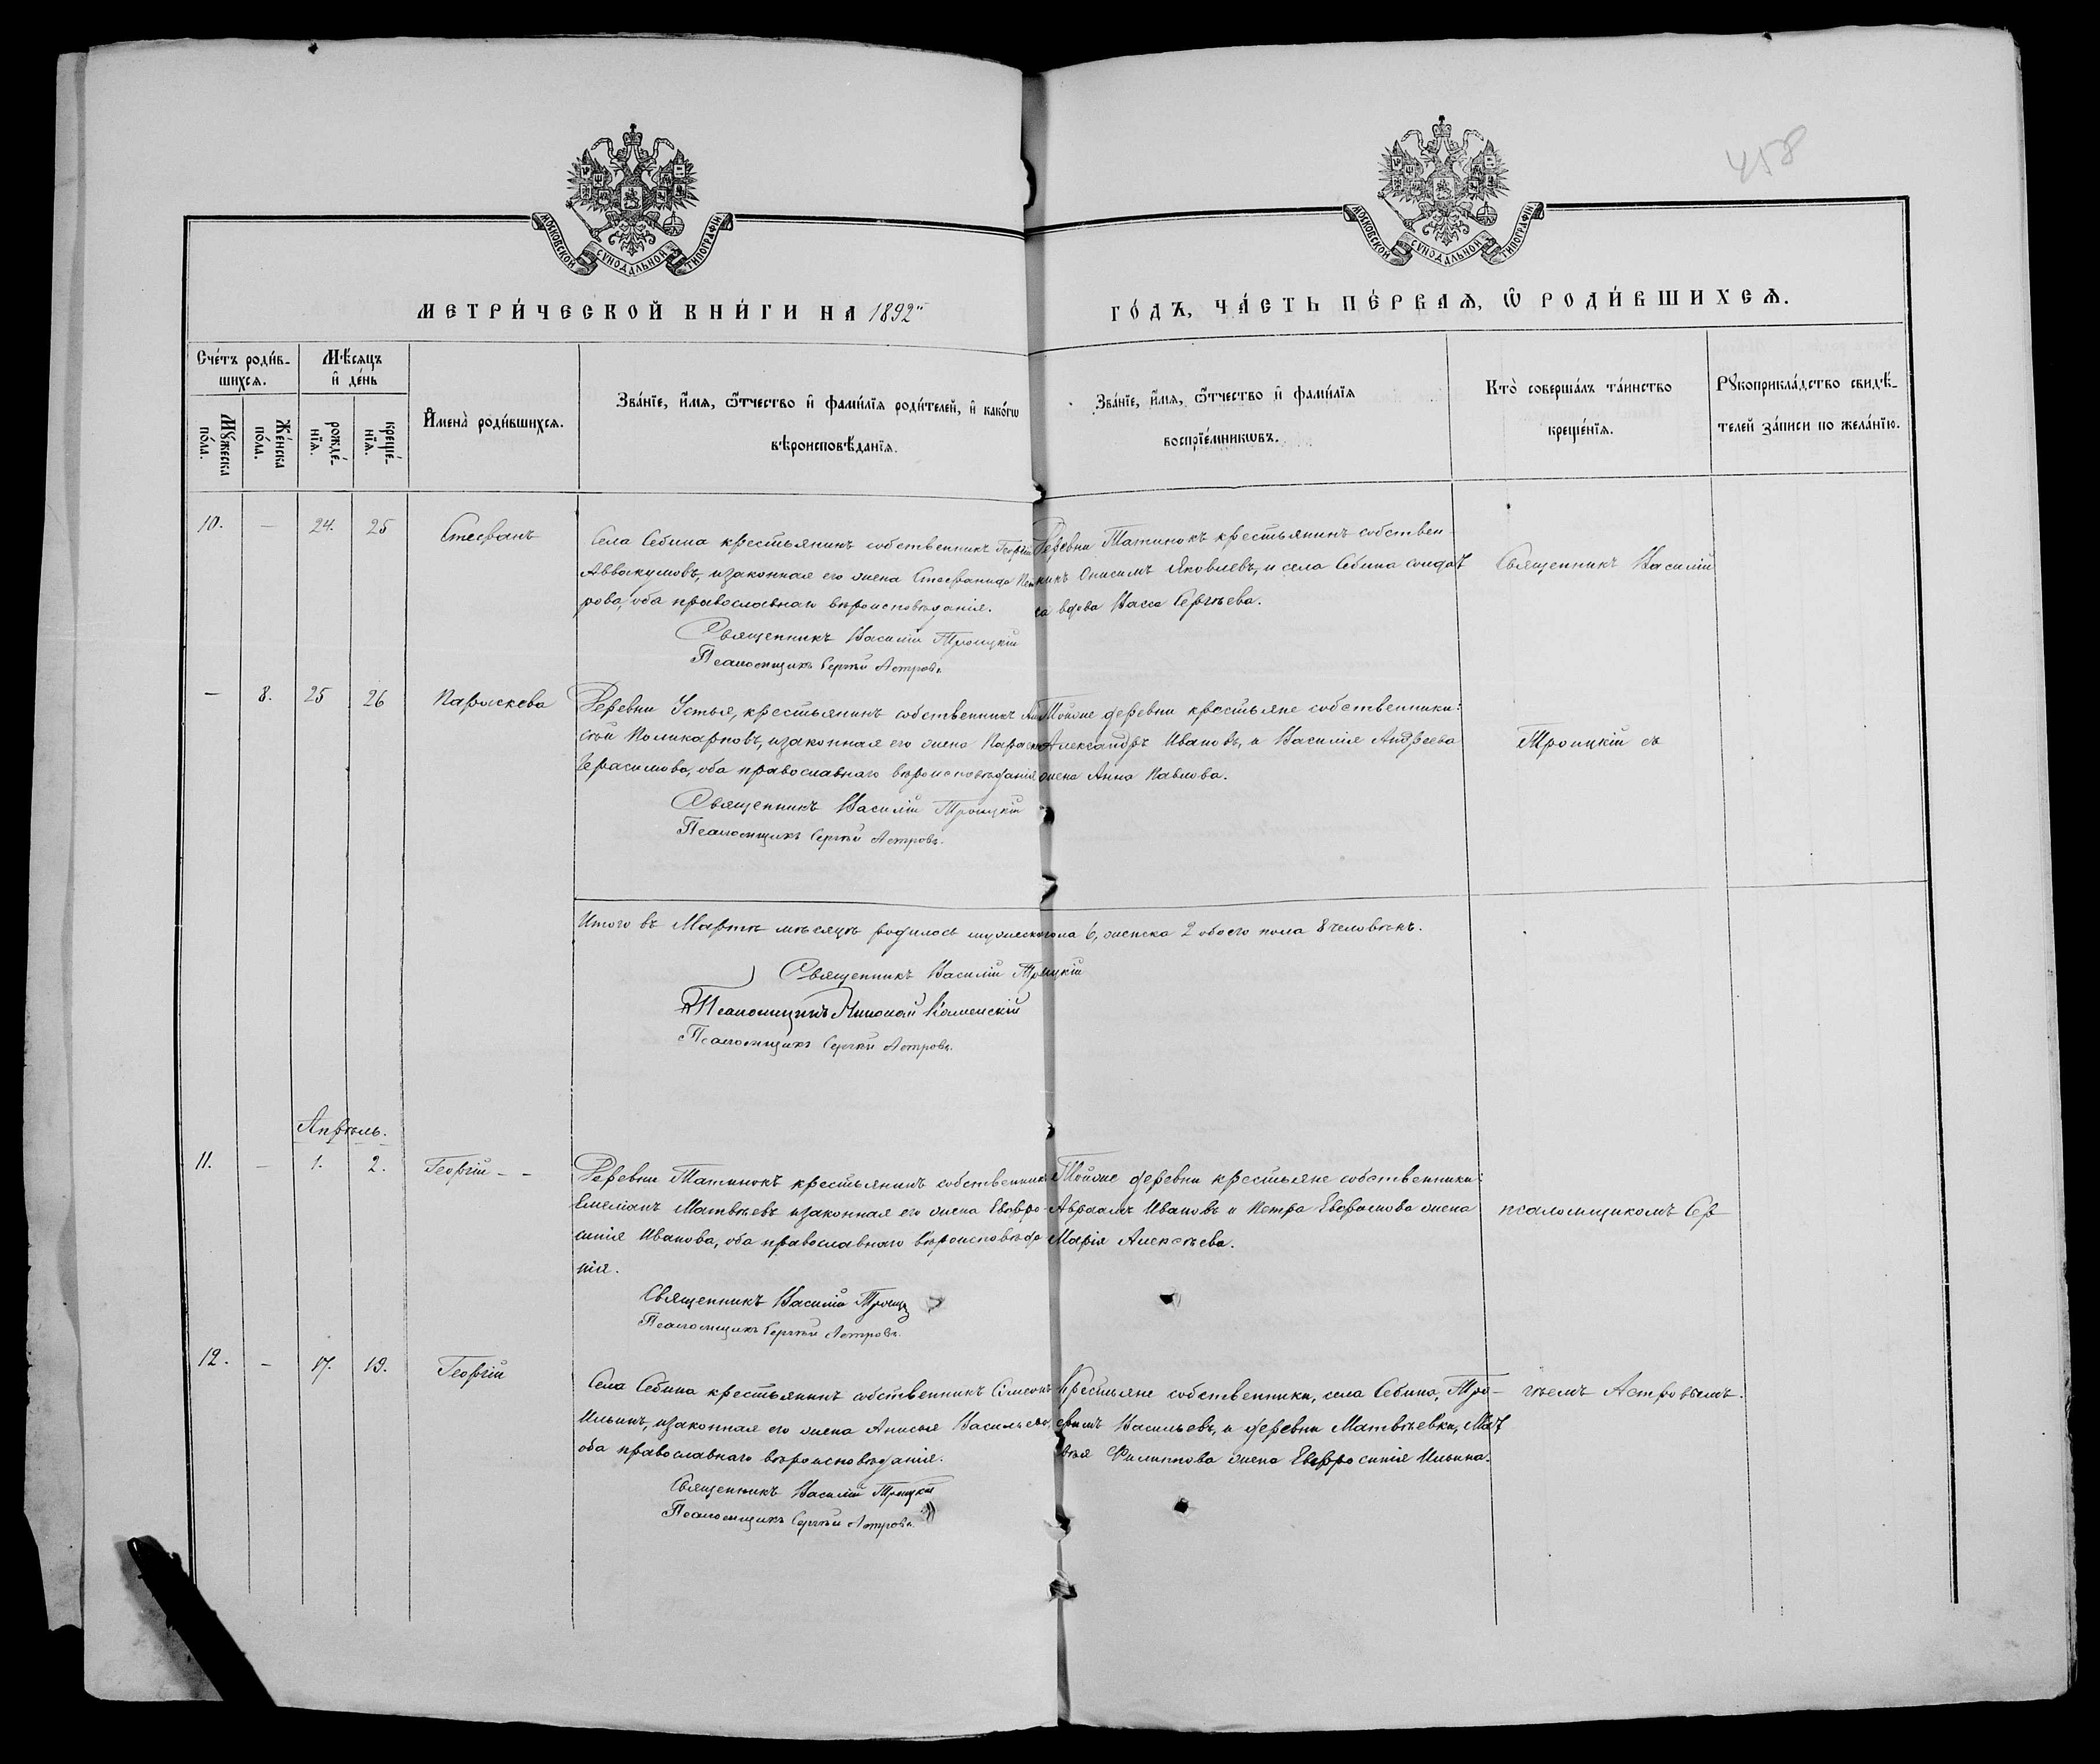 458
МОСКОВСКОЙ СУНОДАЛЬНОЙ ТИПОГРАФІИ
МОСКОВСКОЙ СУНОДАЛЬНОЙ ТИПОГРАФІИ
МЕТРИ́ЧЕСКОЙ КНИ́ГИ НА 1892
ГО́ДЪ, ЧА́СТЬ ПЕ́РВАѦ, Ѿ РОДИ́ВШИХСѦ.
Сче́тъ роди́в-
шихсѧ.
Мѣ́сѧцъ
и҆ де́нь
Мꙋ́жеска
по́ла.
Же́нска
по́ла.
рожде́-
нїѧ.
креще́-
нїѧ.
И҆мена̀ роди́вшихсѧ.
Зва́нїе, и҆́мѧ, ѻ҆́тчество и҆ фами́лїѧ роди́телей, и҆ како́гѡ
вѣроисповѣ́данїѧ.
Зва́нїе, и҆́мѧ, ѻ҆́тчество и҆ фами́лїѧ
воспрїе́мникѡвъ.
Кто̀ соверша́лъ та́инство
креще́нїѧ.
Рꙋкоприкла́дство свидѣ́-
телей за́писи по жела́нїю.
10. — 24. 25 Стефанъ
Села Себина крестьянинъ собственникъ Георгій
Аввакумовъ, изаконная его жена Стефанида Пет
рова, оба православнаго вѣроисповѣданія.
Священникъ Василій Троицкій
Псаломщикъ Сергѣй Астровъ.
Деревни Татинокъ крестьянинъ собствен
никъ Онисимъ Яковлевъ, и села Себина солдат
ка вдова Васса Сергѣева.
Священникъ Василій
— 8. 25 26 Параскева
Деревни Устья, крестьянинъ собственникъ
Поликарповъ, изаконная его жена Параскева
Герасимова, оба православнаго вѣроисповѣданія
Священникъ Василій Троицкій
Псаломщикъ Сергѣй Астровъ.
Тойже деревни крестьяне собственники:
Александръ Ивановъ, и Василія Андреева
жена Анна Павлова.
Троицкій съ
Итого въ Мартѣ мѣсяцѣ родилось мужеска пола 6, женска 2 обоего пола 8 человѣкъ.
Священникъ Василій Троицкій
Псаломщикъ Николай Каменскій
Псаломщикъ Сергѣй Астровъ.
Апрѣль.
11. — 1. 2. Георгій - -
Деревни Татинокъ крестьянинъ собственникъ
Емеліанъ Матвѣевъ изаконная его жена Евфро-
синія Иванова, оба православнаго вѣроисповѣда
нія.
Священникъ Василій Троицк
Псаломщикъ Сергѣй Астровъ.
Тойже деревни крестьяне собственники:
Авраамъ Ивановъ и Петра Ефремова жена
Марія Алексѣева.
псаломщикомъ Сер
12. — 17. 19. Георгій
Села Себина крестьянинъ собственникъ Симеонъ
Ильинъ, изаконная его жена Анисья Васильева,
оба православнаго вѣроисповѣданія.
Священникъ Василій Троицкій
Псаломщикъ Сергѣй Астровъ.
Крестьяне собственники, села Себина, Тро-
фимъ Васильевъ, и деревни Матвѣевки, Мат
вѣя Филиппова жена Евфросинія Ильина.
гѣемъ Астровымъ.